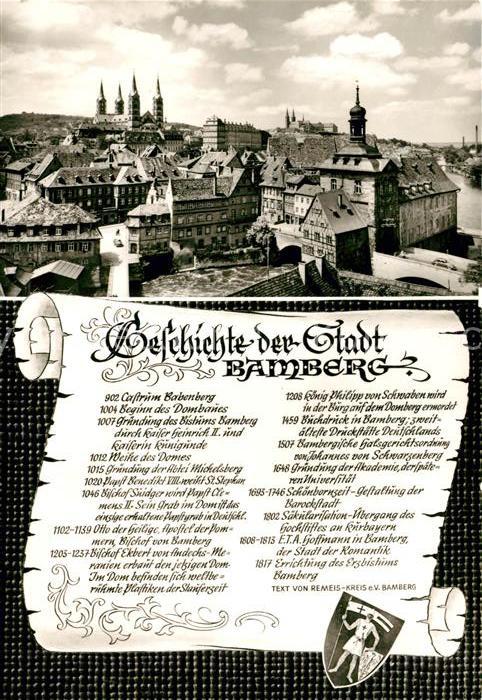 Geschichte der Stadt
BAMBERG
902 Castrum Babenberg
1004 Beginn des Dombaues
1007 Gründung des Bistums Bamberg
durch Kaiser Heinrich II. und
Kaiserin Kunigunde
1012 Weihe des Domes
1015 Gründung der Abtei Michelsberg
1020 Papst Benedikt VIII. weiht St. Stephan
1046 Bischof Suidger wird Papst Cle-
mens II. Sein Grab im Dom ist das
einzige erhaltene Papstgrab in Deutschl.
1102-1139 Otto der Heilige, Apostel der Pom-
mern, Bischof von Bamberg
1203-1237 Bischof Ekbert von Andechs-Me-
ranien erbaut den jetzigen Dom.
Im Dom befinden sich weltbe-
rühmte Plastiken der Stauferzeit
1208 König Philipp von Schwaben wird
in der Burg auf dem Domberg ermordet
1459 Buchdruck in Bamberg; zweit-
älteste Druckstätte Deutschlands
1507 Bambergische Halsgerichtsordnung
von Johannes von Schwarzenberg
1648 Gründung der Akademie, der späte-
ren Universität
1693-1746 Schönbornzeit - Gestaltung der
Barockstadt
1802 Säkularisation - Übergang des
Hochstiftes an Kurbayern
1808-1813 E.T.A. Hoffmann in Bamberg,
der Stadt der Romantik
1817 Errichtung des Erzbistums
Bamberg
TEXT VON REMEIS-KREIS e.V. BAMBERG